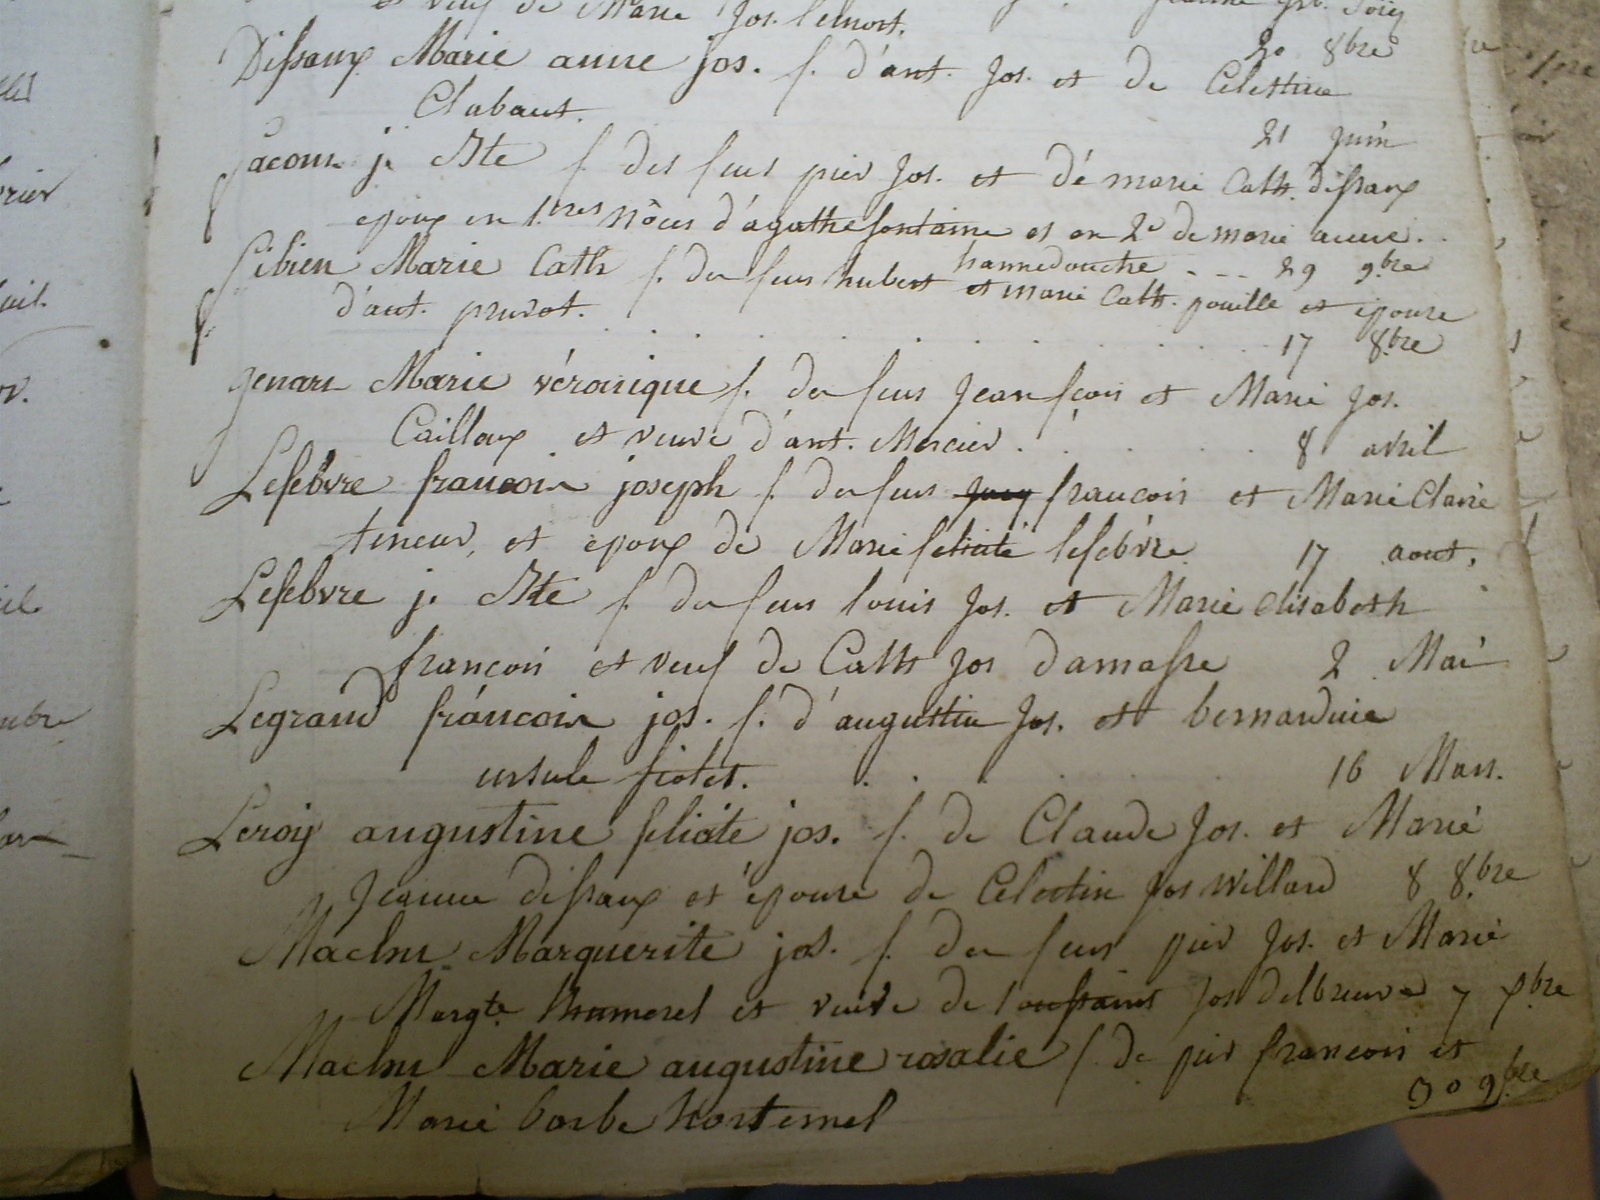 et veuf de Marie Jos. Lemort.
Dissaux Marie anne jos. f. d'ant. Jos. et de Celestine
Clabaut. 20 8bre
jacou j. Bte f. des feus pier Jos. et dé marie Cath. dissaux
epoux en 1.eres nôces d'agathe fontaine et en 2e de marie anne
hannedouche - - - 29 9.bre
Libien Marie Cath f. de feus hubert et marie Cath. pouille et epouse
d'ant. pruvot. 17 8.bre
genart Marie véronique f. de feus Jean fçois et Marie Jos.
Cailloux et veuve d'ant. Mercier. 8 avril
Lefebvre francois joseph f. de feus francois et Marie Claire
teneur, et epoux de Marie felicité lefebvre 17 aout.
Lefebvre j. Bte f. de feus louis Jos. et Marie elisabeth
francois et veuf de Cath Jos damasse 2 Mai
Legrand francois jos. f. d'augustin Jos. et bernardine
ursule fiolet. 16 Mars.
Leroy augustine felicite jos. f. de Claude Jos. et Marie
Jeanne dissaux et epouse de Celestin Jos Willard 8 8.bre
Machu Marguerite jos. f. de feus pier Jos. et Marie
Margte et veuve de toussaint Jos delbreuve 7
Machu Marie augustine rosalie f. de pier francois et
Marie barbe hortemel 30 9.bre